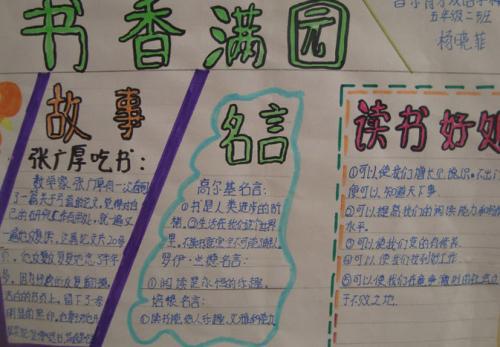 书香满园
五年级二班
杨晓菲
故事
张广厚吃书:
数学家张广厚有一次看到
了一篇关于亏值的论文,觉得对自
己的研究工作有好处,就一遍又
一遍地反复读。这篇论文共20多
页,他反反复复地念了半年多
名言
高尔基名言:
①书是人类进步的阶
梯。②生活在我们这个世界
里,不读书就完全不可能了解人
罗伊·兰德名言:
①阅读是永恒的乐趣。
培根名言:
①读书使人乐趣
读书好处
①可以使我们增长见识。不出门
便可以知道天下事。
②可以提高我们的阅读能力和写作
水平。
③可以使我们变的有修养。
④可以使我们找到好工作
⑤可以使我们在竞争激烈的社会立
于不败之地。